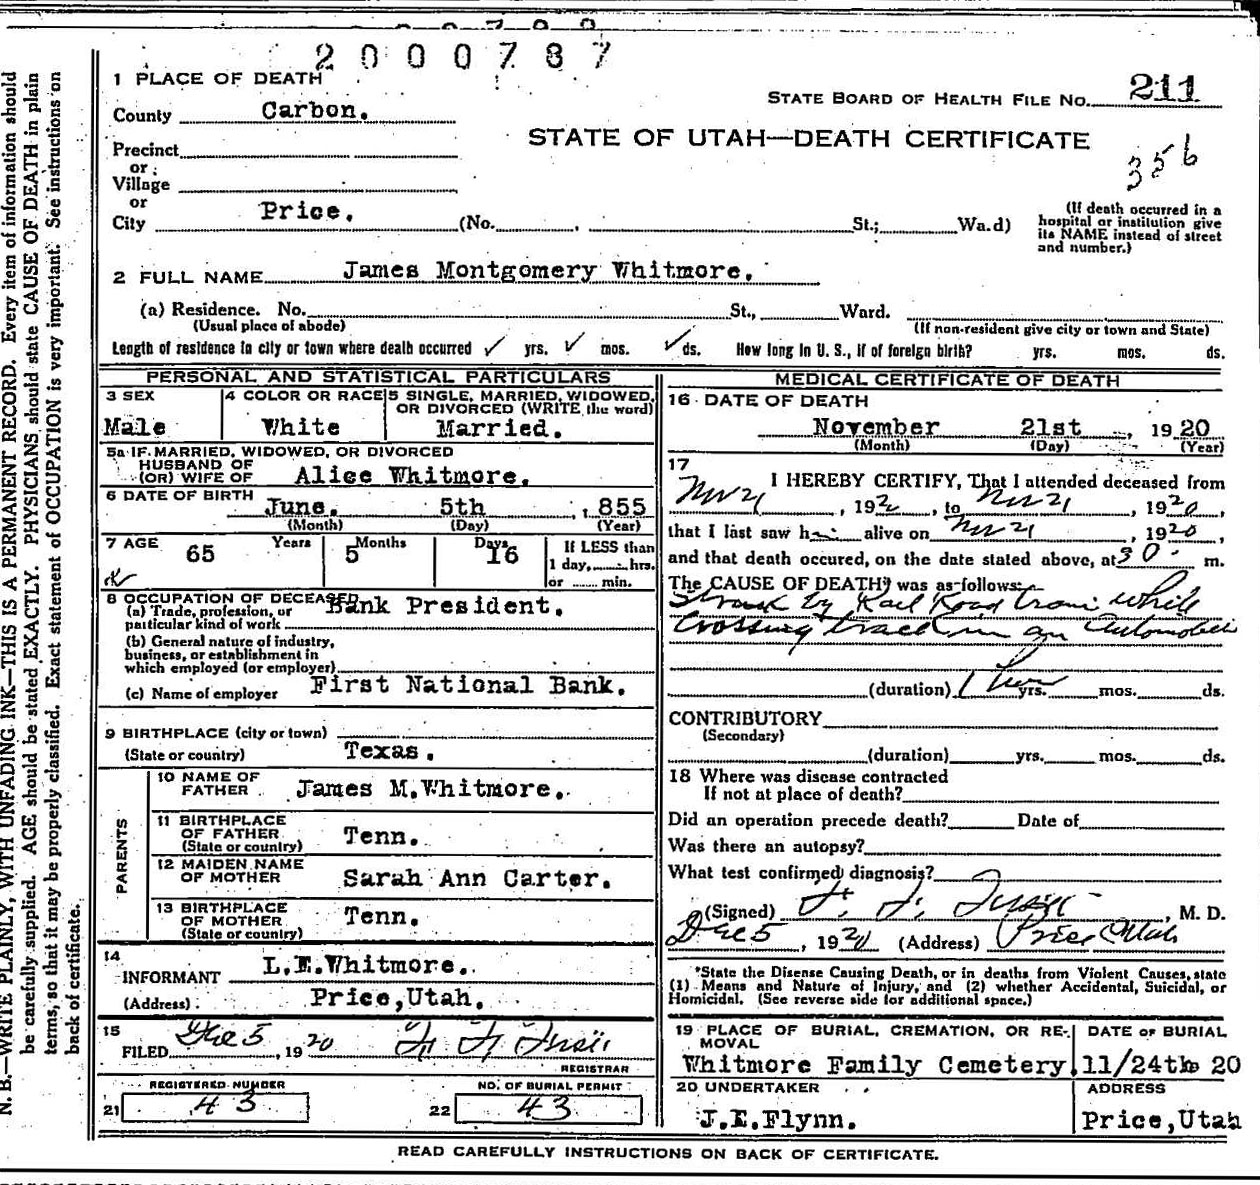 2000787
1 PLACE OF DEATH
STATE BOARD OF HEALTH FILE NO. 211
County Carbon.
STATE OF UTAH—DEATH CERTIFICATE
356
Precinct
or
Village
or
City Price. (No. , St.; Wa.d)
(If death occurred in a hospital or institution give its NAME instead of street and number.)
2 FULL NAME James Montgomery Whitmore.
(a) Residence. No. St., Ward.
(Usual place of abode) (If non-resident give city or town and State)
Length of residence in city or town where death occurred ✓ yrs. ✓ mos. ✓ ds. How long in U. S., if of foreign birth? yrs. mos. ds.
PERSONAL AND STATISTICAL PARTICULARS
3 SEX
Male
4 COLOR OR RACE
White
5 SINGLE, MARRIED, WIDOWED, OR DIVORCED (WRITE the word)
Married.
5a IF MARRIED, WIDOWED, OR DIVORCED
HUSBAND OF
(OR) WIFE OF Alice Whitmore.
6 DATE OF BIRTH June. 5th , 1855
(Month) (Day) (Year)
7 AGE 65 Years 5 Months 16 Days
If LESS than
1 day, hrs.
or min.
8 OCCUPATION OF DECEASED
(a) Trade, profession, or
particular kind of work Bank President.
(b) General nature of industry,
business, or establishment in
which employed (or employer)
(c) Name of employer First National Bank.
9 BIRTHPLACE (city or town)
(State or country) Texas.
PARENTS
10 NAME OF
FATHER James M.Whitmore.
11 BIRTHPLACE
OF FATHER
(State or country) Tenn.
12 MAIDEN NAME
OF MOTHER Sarah Ann Carter.
13 BIRTHPLACE
OF MOTHER
(State or country) Tenn.
14
INFORMANT L.E.Whitmore.
(Address) Price,Utah.
15
FILED Dec 5, 1920
REGISTRAR
REGISTERED NUMBER
21 43
NO. OF BURIAL PERMIT
22 43
MEDICAL CERTIFICATE OF DEATH
16 DATE OF DEATH
November 21st , 1920
(Month) (Day) (Year)
17
I HEREBY CERTIFY, That I attended deceased from
Nov 21, 192 , to Nov 21, 1920,
that I last saw h alive on Nov 21, 1920,
and that death occured, on the date stated above, at m.
The CAUSE OF DEATH* was as follows:
Struck by Rail Road train while
crossing track in an Automobile
(duration) 1 hour yrs. mos. ds.
CONTRIBUTORY
(Secondary)
(duration) yrs. mos. ds.
18 Where was disease contracted
If not at place of death?
Did an operation precede death? Date of
Was there an autopsy?
What test confirmed diagnosis?
(Signed) , M. D.
Dec 5, 1920 (Address) Price Utah
*State the Disense Causing Death, or in deaths from Violent Causes, state
(1) Means and Nature of Injury, and (2) whether Accidental, Suicidal, or
Homicidal. (See reverse side for additional space.)
19 PLACE OF BURIAL, CREMATION, OR RE-
MOVAL
Whitmore Family Cemetery.
DATE OF BURIAL
11/24th 20
20 UNDERTAKER
J.E.Flynn.
ADDRESS
Price,Utah
READ CAREFULLY INSTRUCTIONS ON BACK OF CERTIFICATE.
N. B.—WRITE PLAINLY, WITH UNFADING INK—THIS IS A PERMANENT RECORD. Every item of information should
be carefully supplied. AGE should be stated EXACTLY. PHYSICIANS should state CAUSE OF DEATH in plain
terms, so that it may be properly classified. Exact statement of OCCUPATION is very important. See instructions on
back of certificate.